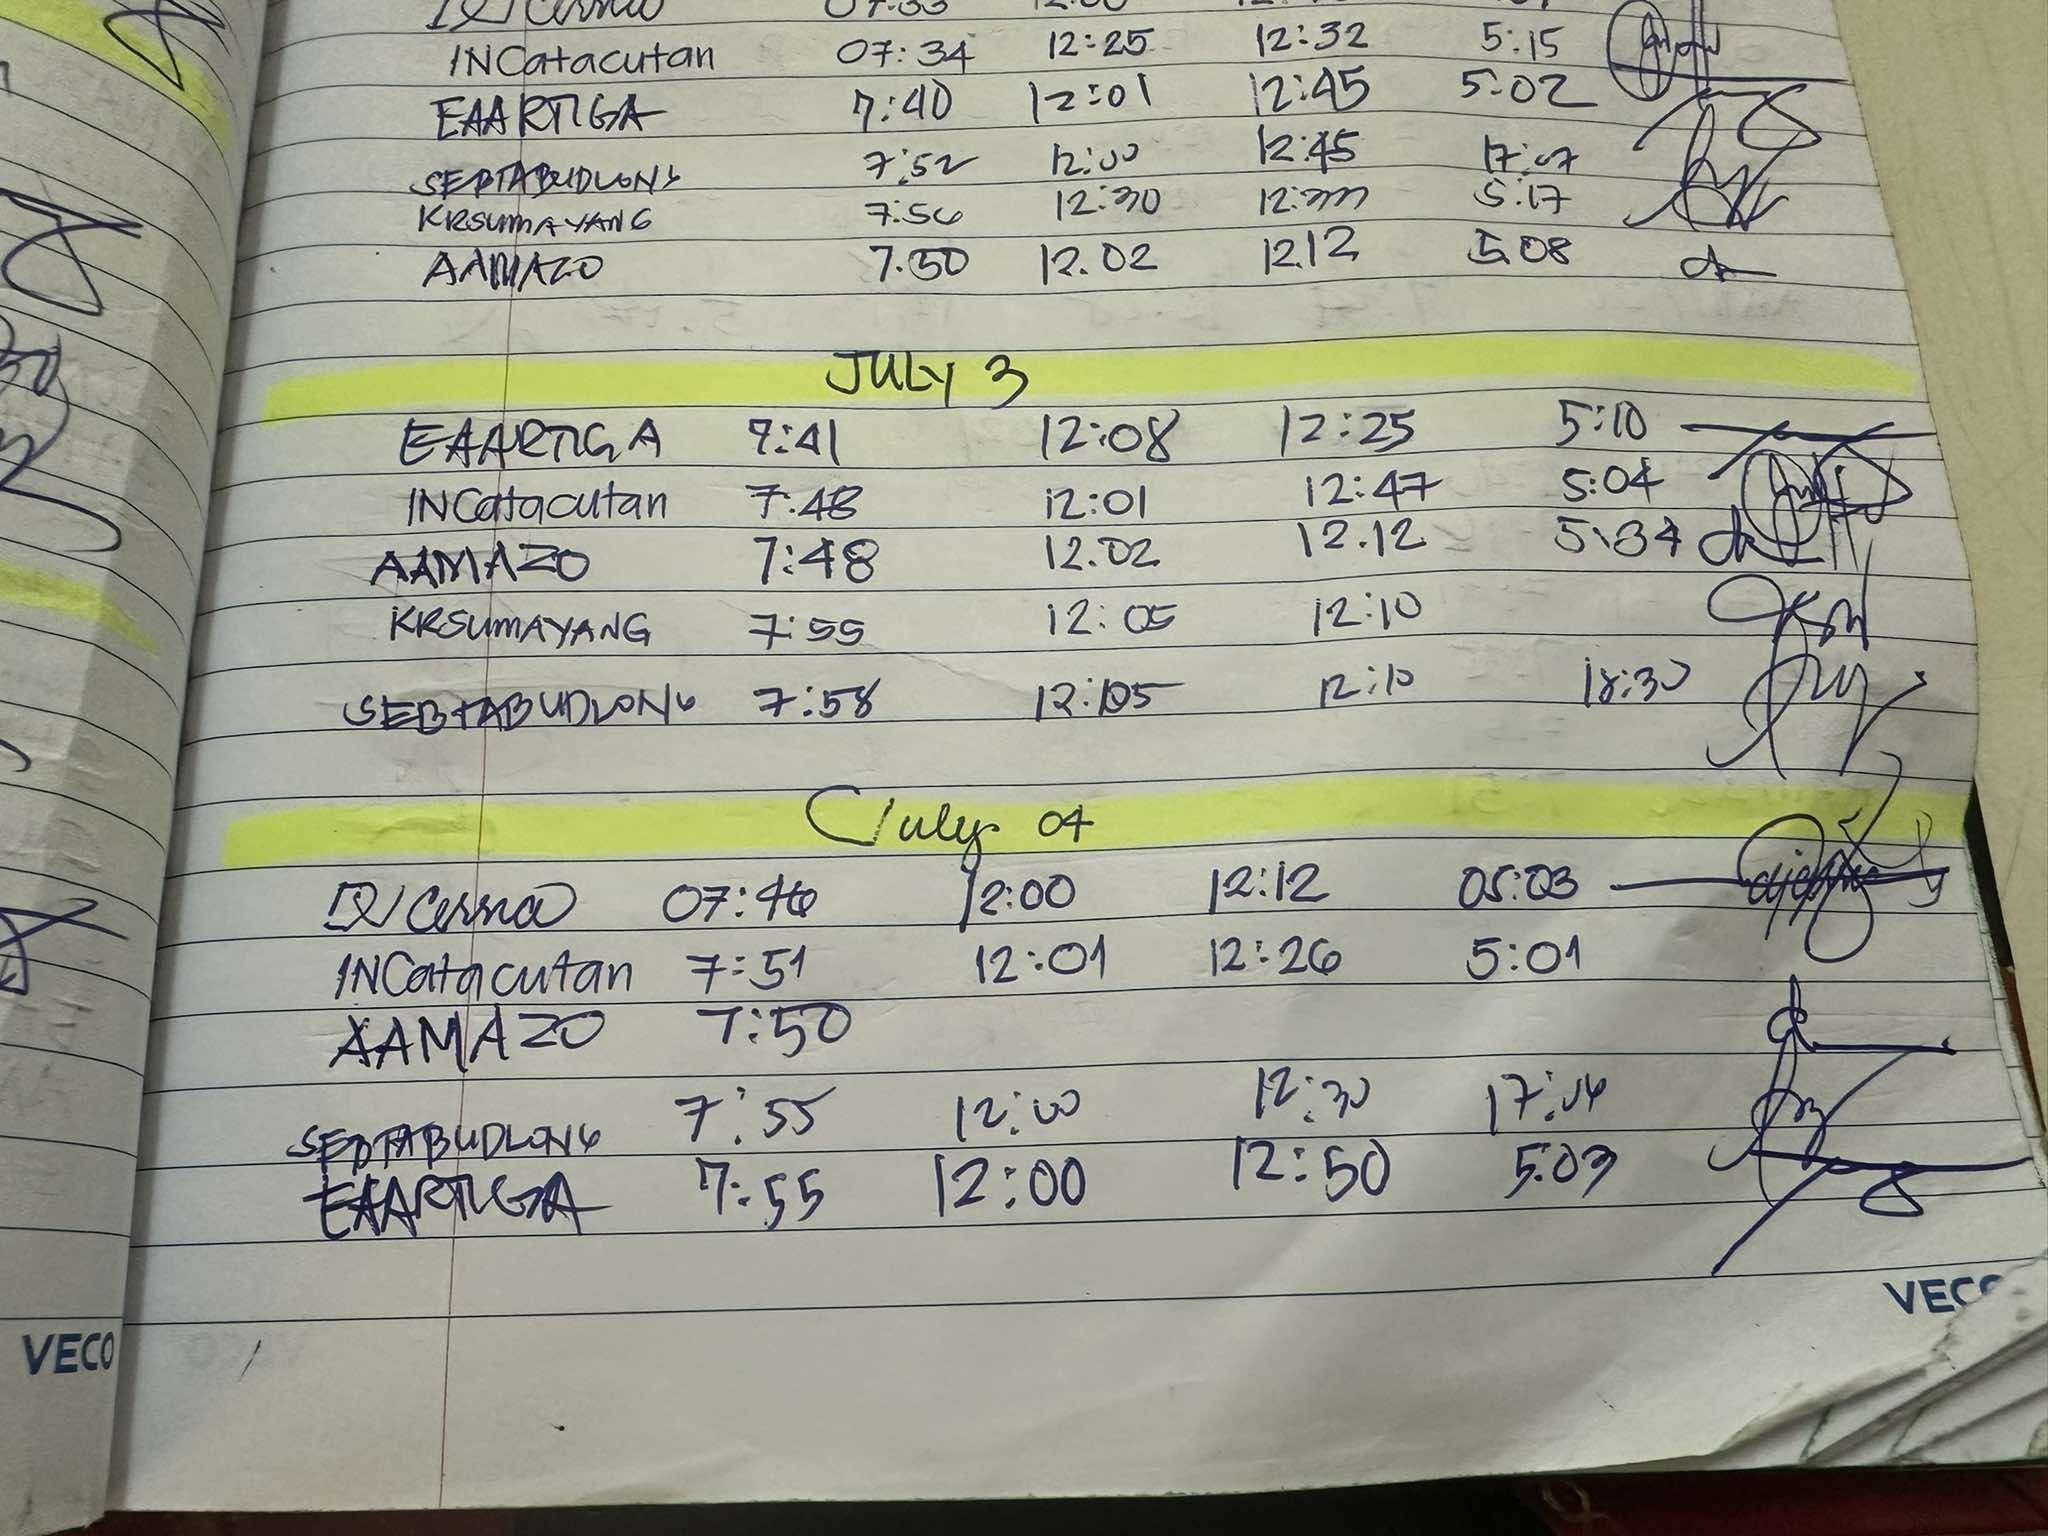 INCatacutan 07:34 12:25 12:32 5:15
EAARTIGA 7:40 12:01 12:45 5:02
SEBTABUDLONG 7:52 12:00 12:45 17:07
KRSUMAYANG 7:56 12:30 12:33 5:17
AAMAZO 7.50 12.02 12.12 5.08
JULY 3
EAARTIGA 7:41 12:08 12:25 5:10
INCatacutan 7:48 12:01 12:47 5:04
AAMAZO 7:48 12.02 12.12 5:34
KRSUMAYANG 7:55 12:05 12:10
SEBTABUDLONG 7:58 12:05 12:10 18:30
July 04
Cerna 07:46 12:00 12:12 05:03
INCatacutan 7:51 12:01 12:26 5:01
AAMAZO 7:50
SEBTABUDLONG 7:55 12:00 12:30 17:04
EAARTIGA 7:55 12:00 12:50 5:03
VECO
VECO